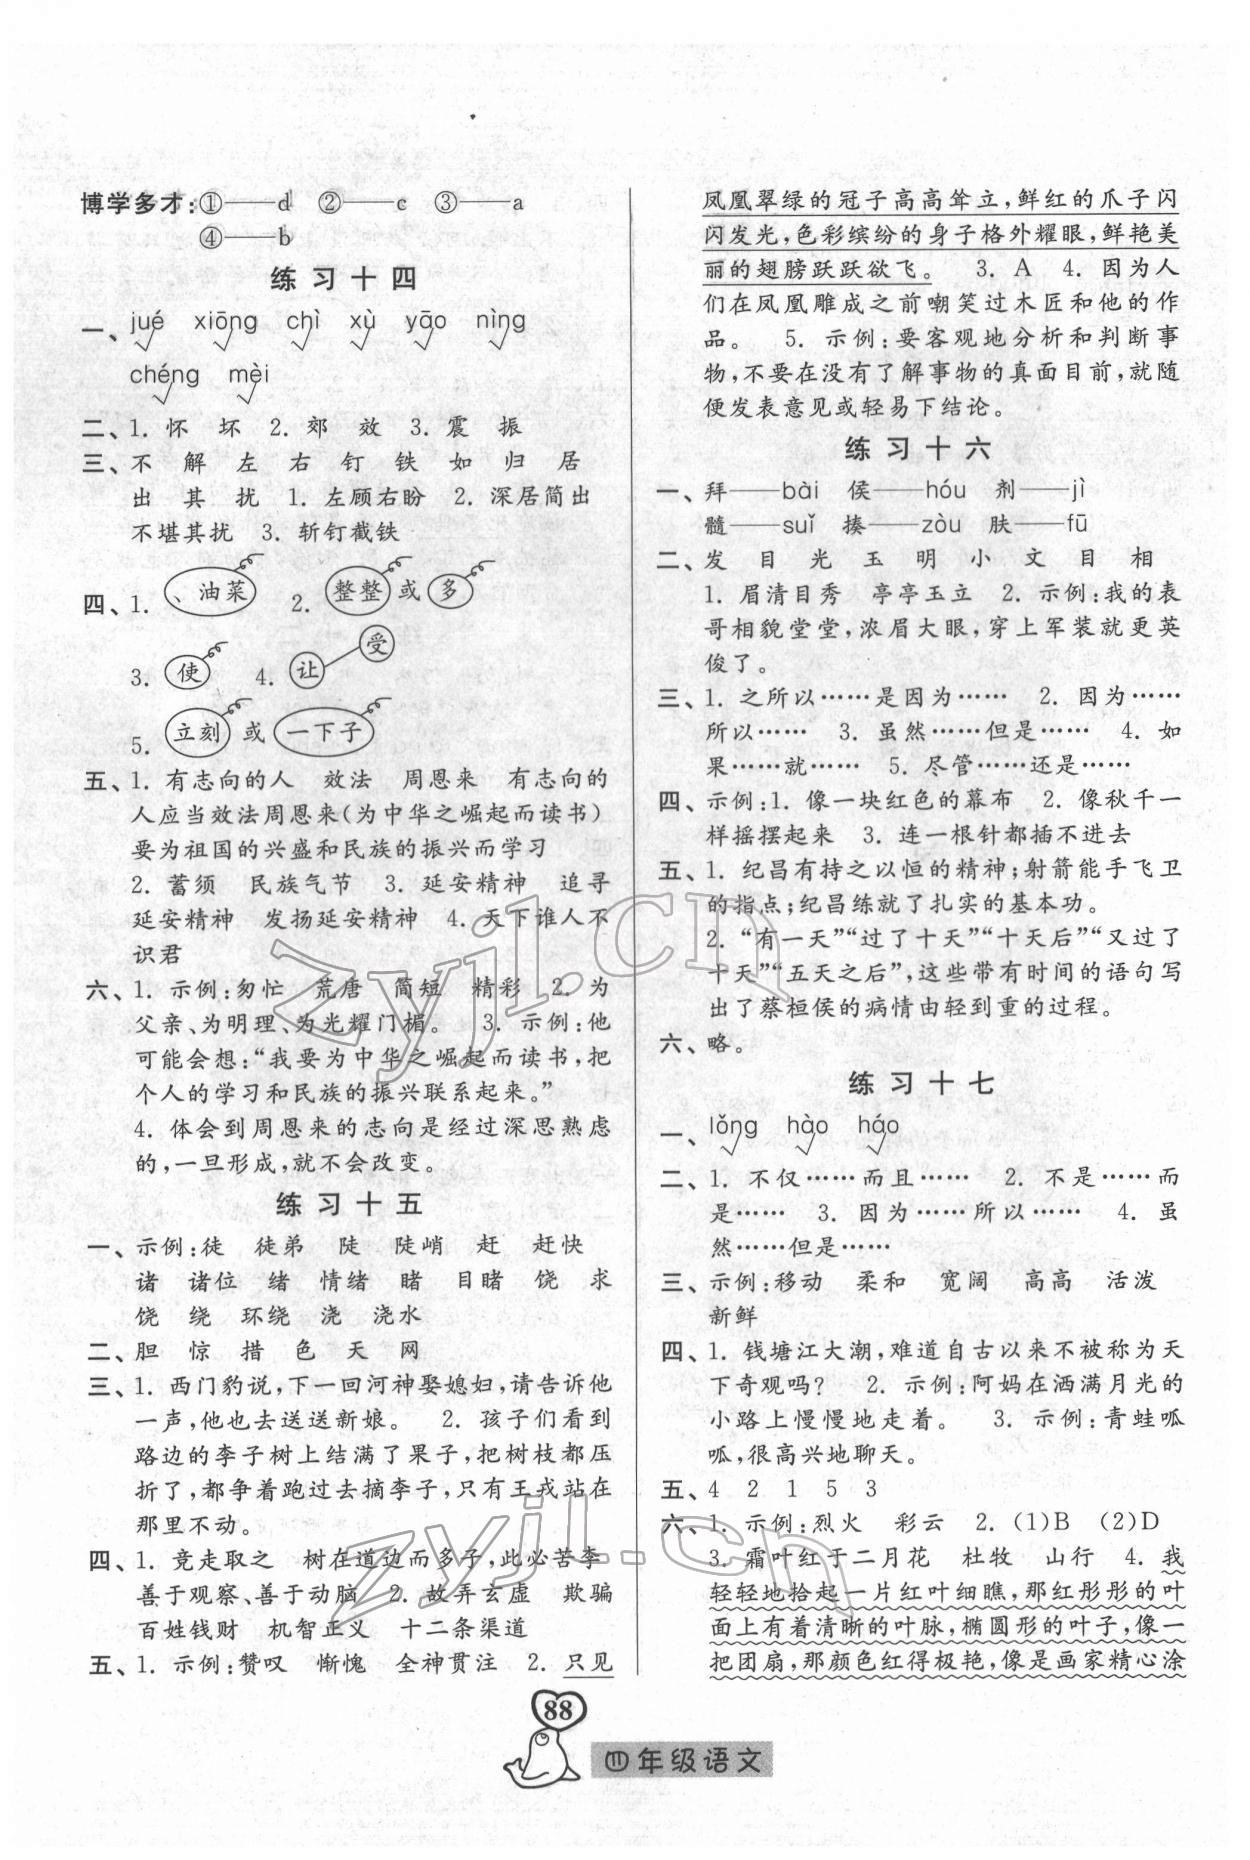 博学多才:①——d ②——c ③——a
④——b
练习十四
一、jué xiōng chì xù yāo nìng
chéng mèi
二、1. 怀 坏 2. 郊 效 3. 震 振
三、不 解 左 右 钉 铁 如 归 居
出 其 扰 1. 左顾右盼 2. 深居简出
不堪其扰 3. 斩钉截铁
四、1. 、油菜 2. 整整 或 多
3. 使 4. 让 受
5. 立刻 或 一下子
五、1. 有志向的人 效法 周恩来 有志向的
人应当效法周恩来(为中华之崛起而读书)
要为祖国的兴盛和民族的振兴而学习
2. 蓄须 民族气节 3. 延安精神 追寻
延安精神 发扬延安精神 4. 天下谁人不
识君
六、1. 示例:匆忙 荒唐 简短 精彩 2. 为
父亲、为明理、为光耀门楣。 3. 示例:他
可能会想:“我要为中华之崛起而读书,把
个人的学习和民族的振兴联系起来。”
4. 体会到周恩来的志向是经过深思熟虑
的,一旦形成,就不会改变。
练习十五
一、示例:徒 徒弟 陡 陡峭 赶 赶快
诸 诸位 绪 情绪 睹 目睹 饶 求
饶 绕 环绕 浇 浇水
二、胆 惊 措 色 天 网
三、1. 西门豹说,下一回河神娶媳妇,请告诉他
一声,他也去送送新娘。 2. 孩子们看到
路边的李子树上结满了果子,把树枝都压
折了,都争着跑过去摘李子,只有王戎站在
那里不动。
四、1. 竞走取之 树在道边而多子,此必苦李
善于观察、善于动脑 2. 故弄玄虚 欺骗
百姓钱财 机智正义 十二条渠道
五、1. 示例:赞叹 惭愧 全神贯注 2. 只见
凤凰翠绿的冠子高高耸立,鲜红的爪子闪
闪发光,色彩缤纷的身子格外耀眼,鲜艳美
丽的翅膀跃跃欲飞。 3. A 4. 因为人
们在凤凰雕成之前嘲笑过木匠和他的作
品。 5. 示例:要客观地分析和判断事
物,不要在没有了解事物的真面目前,就随
便发表意见或轻易下结论。
练习十六
一、拜——bài 侯——hóu 剂——jì
髓——suǐ 揍——zòu 肤——fū
二、发 目 光 玉 明 小 文 目 相
1. 眉清目秀 亭亭玉立 2. 示例:我的表
哥相貌堂堂,浓眉大眼,穿上军装就更英
俊了。
三、1. 之所以……是因为…… 2. 因为……
所以…… 3. 虽然……但是…… 4. 如
果……就…… 5. 尽管……还是……
四、示例:1. 像一块红色的幕布 2. 像秋千一
样摇摆起来 3. 连一根针都插不进去
五、1. 纪昌有持之以恒的精神;射箭能手飞卫
的指点;纪昌练就了扎实的基本功。
2. “有一天”“过了十天”“十天后”“又过了
十天”“五天之后”,这些带有时间的语句写
出了蔡桓侯的病情由轻到重的过程。
六、略。
练习十七
一、lǒng hào háo
二、1. 不仅……而且…… 2. 不是……而
是…… 3. 因为……所以…… 4. 虽
然……但是……
三、示例:移动 柔和 宽阔 高高 活泼
新鲜
四、1. 钱塘江大潮,难道自古以来不被称为天
下奇观吗? 2. 示例:阿妈在洒满月光的
小路上慢慢地走着。 3. 示例:青蛙呱
呱,很高兴地聊天。
五、4 2 1 5 3
六、1. 示例:烈火 彩云 2. (1)B (2)D
3. 霜叶红于二月花 杜牧 山行 4. 我
轻轻地拾起一片红叶细瞧,那红彤彤的叶
面上有着清晰的叶脉,椭圆形的叶子,像一
把团扇,那颜色红得极艳,像是画家精心涂
88
四年级语文
zyjl.cn
zyjl.cn